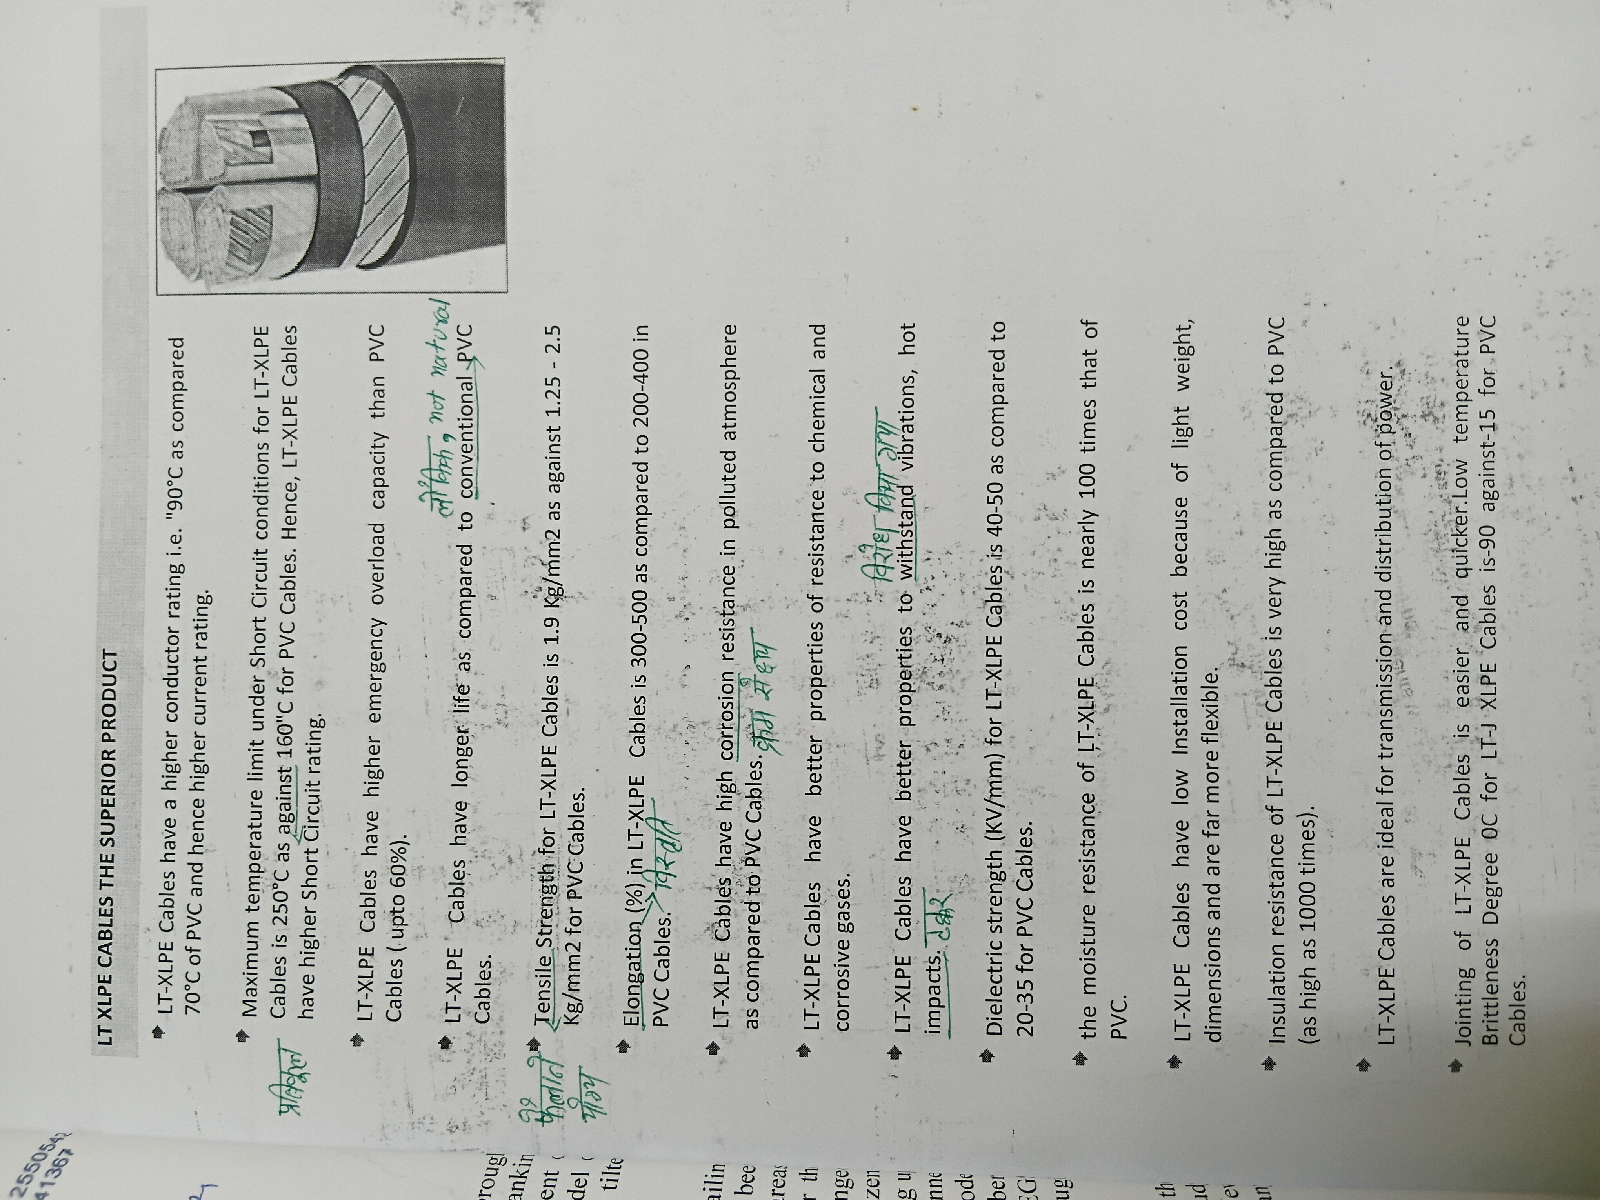 LT XLPE CABLES THE SUPERIOR PRODUCT
LT-XLPE Cables have a higher conductor rating i.e. "90°C as compared
70°C of PVC and hence higher current rating.
Maximum temperature limit under Short Circuit conditions for LT-XLPE
प्रतिकूल
Cables is 250°C as against 160"C for PVC Cables. Hence, LT-XLPE Cables
have higher Short Circuit rating.
LT-XLPE Cables have higher emergency overload capacity than PVC
Cables ( upto 60%).
not natural
LT-XLPE Cables have longer life as compared to conventional PVC
Cables.
Tensile Strength for LT-XLPE Cables is 1.9 Kg/mm2 as against 1.25 - 2.5
फैलाने
योग्य
Kg/mm2 for PVC Cables.
Elongation (%) in LT-XLPE Cables is 300-500 as compared to 200-400 in
PVC Cables.
विस्तृति
LT-XLPE Cables have high corrosion resistance in polluted atmosphere
as compared to PVC Cables.
क्रम से क्षय
LT-XLPE Cables have better properties of resistance to chemical and
corrosive gases.
विरोध किया गया
LT-XLPE Cables have better properties to withstand vibrations, hot
impacts.
टक्कर
Dielectric strength (KV/mm) for LT-XLPE Cables is 40-50 as compared to
20-35 for PVC Cables.
the moisture resistance of LT-XLPE Cables is nearly 100 times that of
PVC.
LT-XLPE Cables have low Installation cost because of light weight,
dimensions and are far more flexible.
Insulation resistance of LT-XLPE Cables is very high as compared to PVC
(as high as 1000 times).
LT-XLPE Cables are ideal for transmission and distribution of power.
Jointing of LT-XLPE Cables is easier and quicker.Low temperature
Brittleness Degree 0C for LT-J XLPE Cables is-90 against-15 for PVC
Cables.